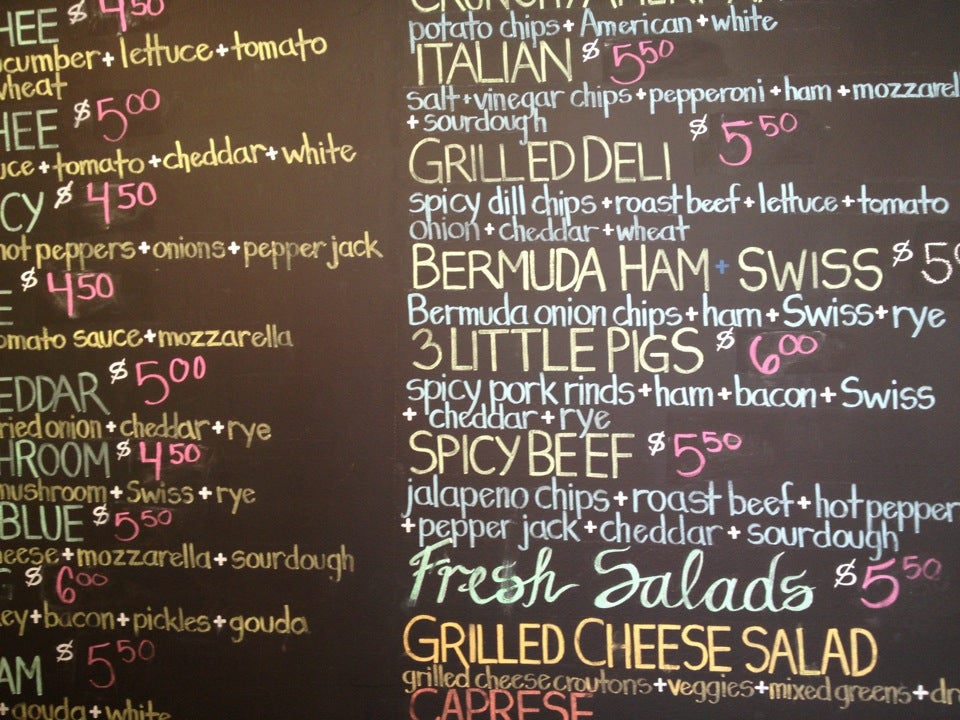 HEE $4.50
cucumber+lettuce+tomato
wheat
HEE $5.00
uce+tomato+cheddar+white
CY $4.50
hot peppers+onions+pepper jack
E $4.50
omato sauce+mozzarella
EDDAR $5.00
ried onion+cheddar+rye
HROOM $4.50
mushroom+Swiss+rye
BLUE $5.50
heese+mozzarella+sourdough
$6.00
ey+bacon+pickles+gouda
AM $5.50
+gouda+white
potato chips+American+white
ITALIAN $5.50
salt+vinegar chips+pepperoni+ham+mozzarel
+sourdough
GRILLED DELI $5.50
spicy dill chips+roast beef+lettuce+tomato
onion+cheddar+wheat
BERMUDA HAM+SWISS $5
Bermuda onion chips+ham+Swiss+rye
3 LITTLE PIGS $6.00
spicy pork rinds+ham+bacon+Swiss
+cheddar+rye
SPICY BEEF $5.50
jalapeno chips+roast beef+hot pepper
+pepper jack+cheddar+sourdough
Fresh Salads $5.50
GRILLED CHEESE SALAD
grilled cheese croutons+veggies+mixed greens+dr
CAPRESE